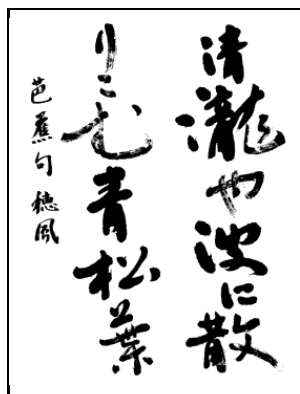 清瀧や波に散
りこむ青松葉
芭蕉句 穂風